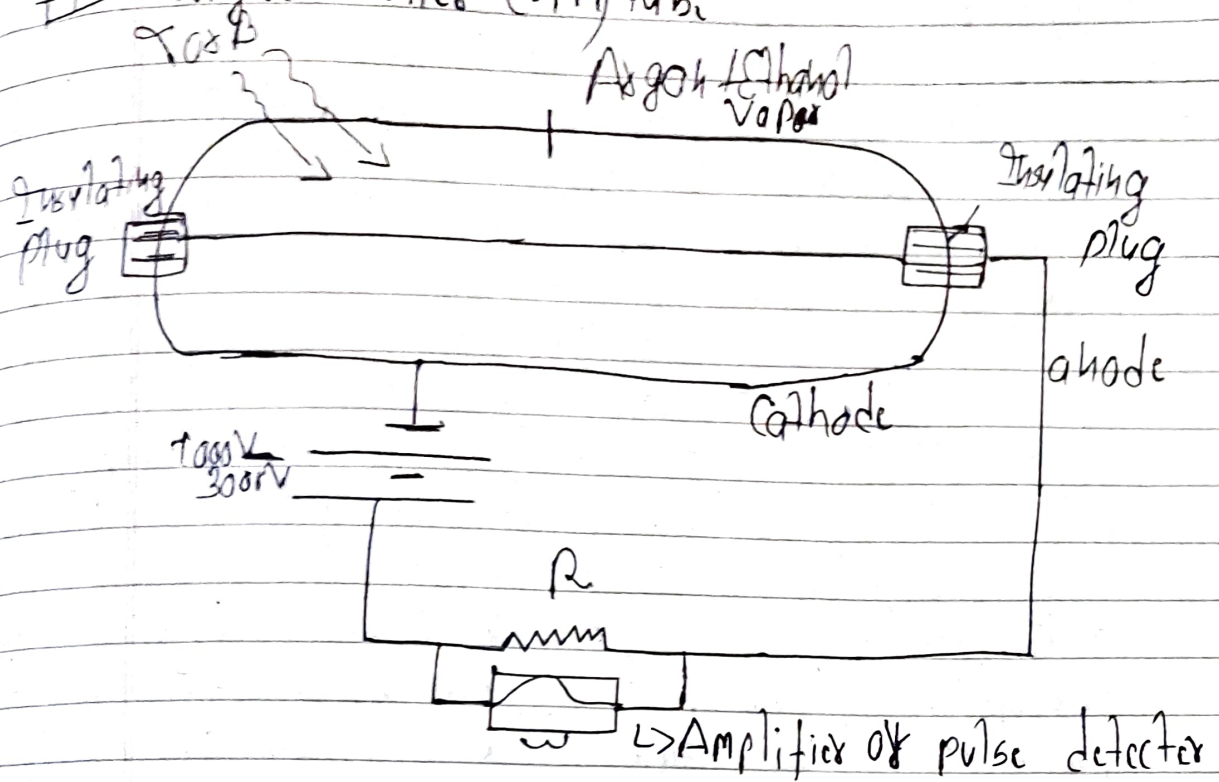 (GM) tube
γ or β
Argon + Ethanol
Vapor
Insulating
plug
Insulating
plug
anode
Cathode
1000V
3000V
R
↳ Amplifier or pulse detector